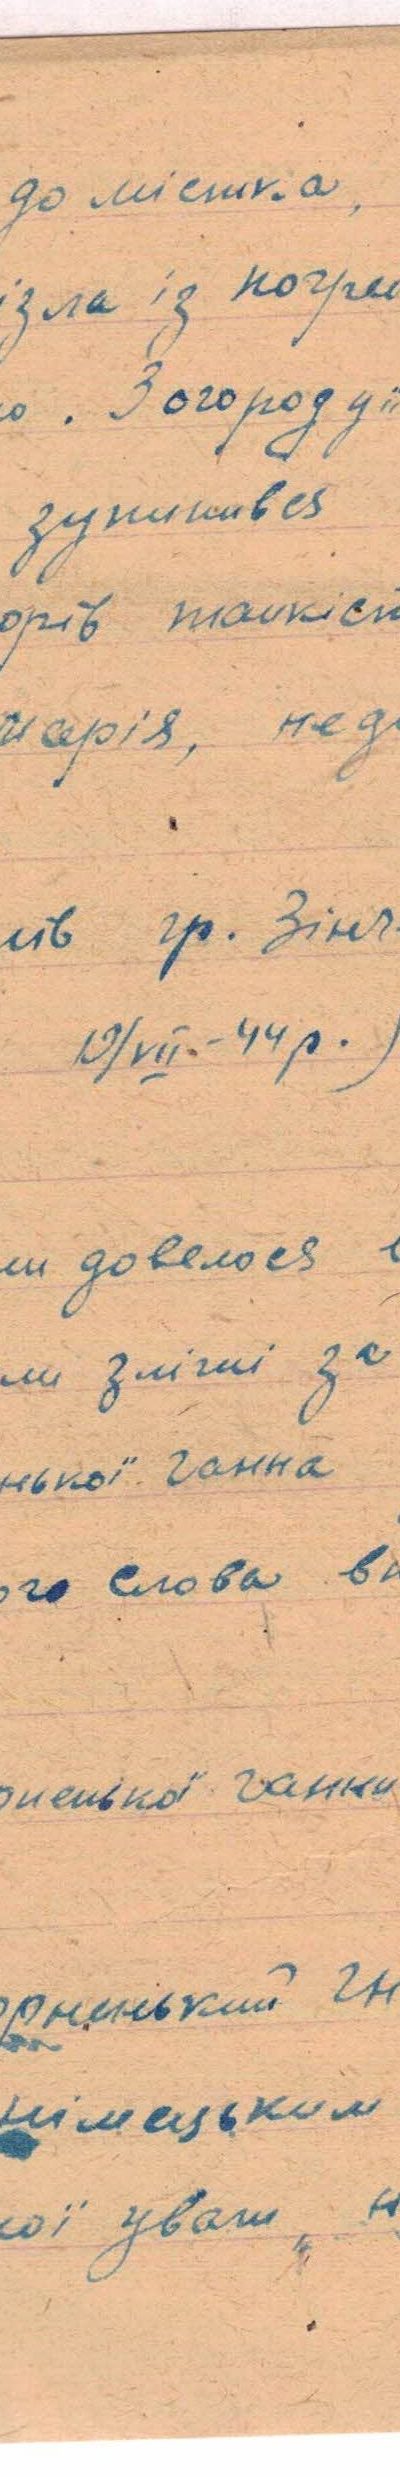 до містка,
ізла із погре
о. З огород уї
зупинився
орів танкіст
нарія, неда
лів гр. Зінч
19/VII-44р.)
ми довелося в
ли злічні за
нької Ганна
ого слова ви
рненької Ганни
орненький Гн
німецьким
кої уваги, н